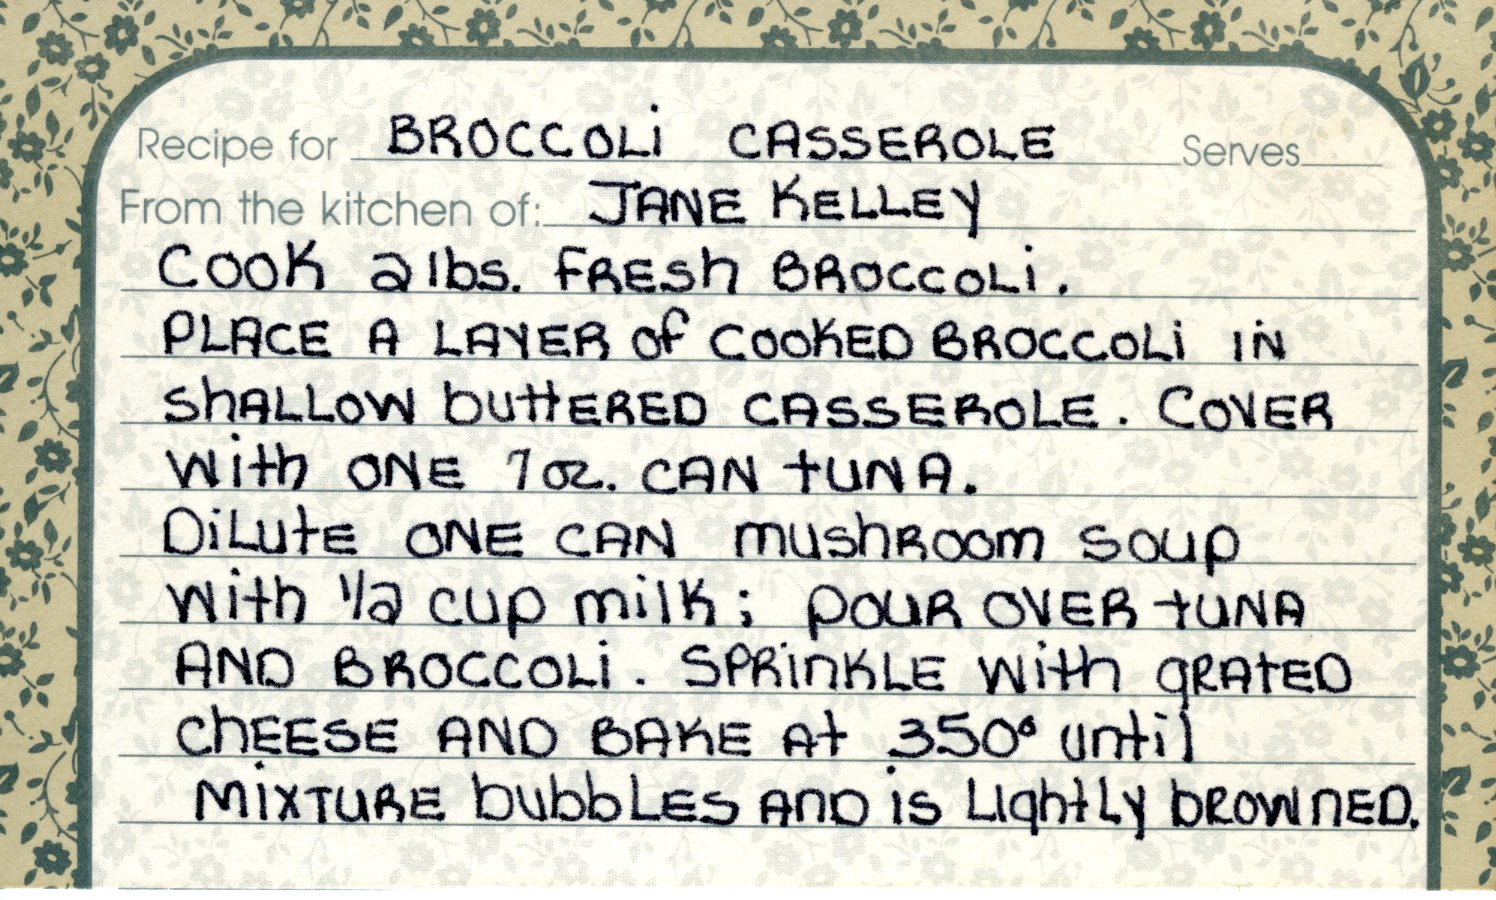 Recipe for BROCCOLi CASSEROLE Serves
From the kitchen of: JANE KELLEY
COOK 2 lbs. FRESh BROCCOLi.
PLACE A LAYER of COOKED BROCCOLi IN
ShALLOW buttERED CASSEROLE. COVER
With ONE 7 oz. CAN tUNA.
DiLUtE ONE CAN mushROOm SOUp
With 1/2 cup milk; POUR OVER tUNA
AND BROCCOLi. SPRiNKLE With gRAtED
ChEESE AND BAKE At 350° until
MiXTURE bubbLES AnD iS LightLy bROWnED.